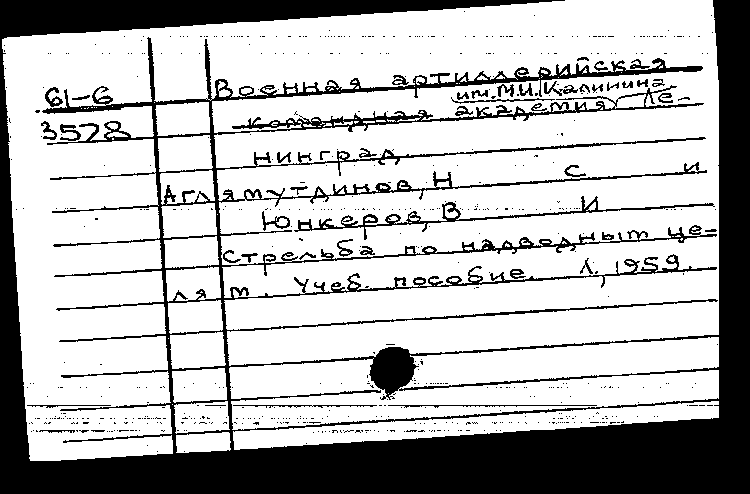 61-6 Военная артиллерийская
им. М.И. Калинина
3578 командная академия, Ле-
нинград
Аглямутдинов, Н С и
Юнкеров, В И
Стрельба по надводным це-
лям. Учеб. пособие. Л., 1959.